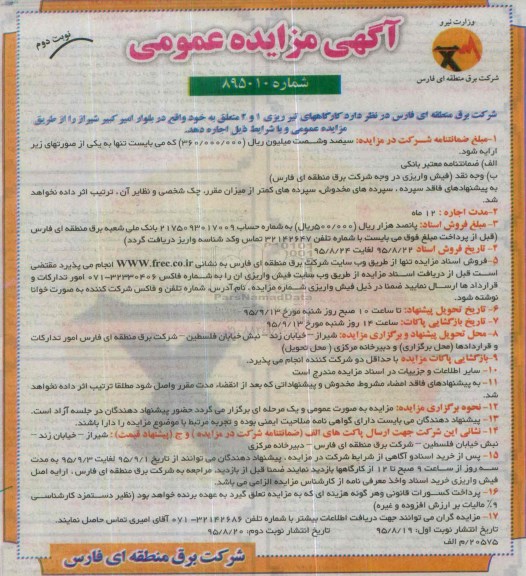 وزارت نیرو
شرکت برق منطقه ای فارس
نوبت دوم
آگهی مزایده عمومی
شماره ۸۹۵۰۱۰
شرکت برق منطقه ای فارس در نظر دارد کارگاههای تیر ریزی ۱ و ۲ متعلق به خود واقع در بلوار امیر کبیر شیراز را از طریق
مزایده عمومی و با شرایط ذیل اجاره دهد.
۱-مبلغ ضمانتنامه شرکت در مزایده: سیصد وشصت میلیون ریال (۳۶۰/۰۰۰/۰۰۰) که می بایست تنها به یکی از صورتهای زیر
ارایه شود.
الف) ضمانتنامه معتبر بانکی
ب) وجه نقد (فیش واریزی در وجه شرکت برق منطقه ای فارس)
به پیشنهادهای فاقد سپرده ، سپرده های مخدوش، سپرده های کمتر از میزان مقرر، چک شخصی و نظایر آن ، ترتیب اثر داده نخواهد
شد.
۲-مدت اجاره : ۱۲ ماه
۳- مبلغ فروش اسناد: پانصد هزار ریال (۵۰۰/۰۰۰ریال) به شماره حساب ۲۱۷۵۰۹۲۰۱۷۰۰۹ بانک ملی شعبه برق منطقه ای فارس
(قبل از پرداخت مبلغ فوق می بایست با شماره تلفن ۳۲۱۴۲۶۴۷ تماس وکد شناسه واریز دریافت گردد)
۴- تاریخ فروش اسناد ۹۵/۸/۲۲ لغایت ۹۵/۸/۲۴
۵- فروش اسناد مزایده تنها از طریق وب سایت شرکت برق منطقه ای فارس به نشانی WWW.frec.co.ir انجام می پذیرد مقتضی
است قبل از دریافت اسناد مزایده از طریق وب سایت فیش واریزی آن را به شماره فاکس ۳۲۳۳۰۴۰۶-۰۷۱ امور تدارکات و
قرارداد ها ارسال نمایید ضمنا در ذیل فیش واریزی شماره مزایده، نام،آدرس، شماره تلفن و فاکس شرکت کننده به صورت خوانا
نوشته شود.
۶- تاریخ تحویل پیشنهاد: تا ساعت ۱۰ صبح روز شنبه مورخ ۹۵/۹/۱۳
۷- تاریخ بازگشایی پاکات: ساعت ۱۴ روز شنبه مورخ ۹۵/۹/۱۳
۸- محل تحویل پیشنهاد و برگزاری مزایده: شیراز– خیابان زند – نبش خیابان فلسطین – شرکت برق منطقه ای فارس امور تدارکات
و قراردادها (محل برگزاری) و دبیرخانه مرکزی ( محل تحویل)
۹- بازگشایی پاکات مزایده با حداقل دو شرکت کننده انجام می پذیرد.
۱۰- سایر اطلاعات و جزییات در اسناد مزایده مندرج است
۱۱- به پیشنهادهای فاقد امضاء مشروط مخدوش و پیشنهاداتی که بعد از انقضاء مدت مقرر واصل شود مطلقا ترتیب اثر داده نخواهد
شد.
۱۲- نحوه برگزاری مزایده: مزایده به صورت عمومی و یک مرحله ای برگزار می گردد حضور پیشنهاد دهندگان در جلسه آزاد است.
۱۳- پیشنهاد دهندگان می بایست دارای گواهی نامه صلاحیت ایمنی بوده و تجربه مرتبط با موضوع مزایده را دارا باشند.
۱۴- نشانی این شرکت جهت ارسال پاکت های الف (ضمانتنامه شرکت در مزایده ) و ج (پیشنهاد قیمت) : شیراز – خیابان زند –
نبش خیابان فلسطین – شرکت برق منطقه ای فارس – دبیرخانه مرکزی
۱۵- پس از خرید اسنادو آگاهی از شرایط شرکت در مزایده ، پیشنهاد دهندگان می توانند از تاریخ ۹۵/۹/۱ لغایت ۹۵/۹/۳ به مدت
سه روز از ساعت ۹ صبح تا ۱۲ از کارگاهها بازدید نمایند ضمنا قبل از بازدید، مراجعه به شرکت برق منطقه ای فارس ، ارایه اصل
فیش واریزی خرید اسناد واخذ معرفی نامه از کارشناس مزایده الزامی می باشد.
۱۶- پرداخت کسورات قانونی وهر گونه هزینه ای که به مزایده تعلق گیرد به عهده برنده خواهد بود (نظیر دستمزد کارشناسی
۹٪ مالیات بر ارزش افزوده و غیره)
۱۷- مزایده گران می توانند جهت دریافت اطلاعات بیشتر با شماره تلفن ۳۲۱۴۲۶۸۶-۰۷۱ آقای امیری تماس حاصل نمایند.
تاریخ انتشار نوبت اول: ۹۵/۸/۱۹ تاریخ انتشار نوبت دوم: ۹۵/۸/۲۰
۲۰۵۷۵/م الف
شرکت برق منطقه ای فارس
ParsNamadData